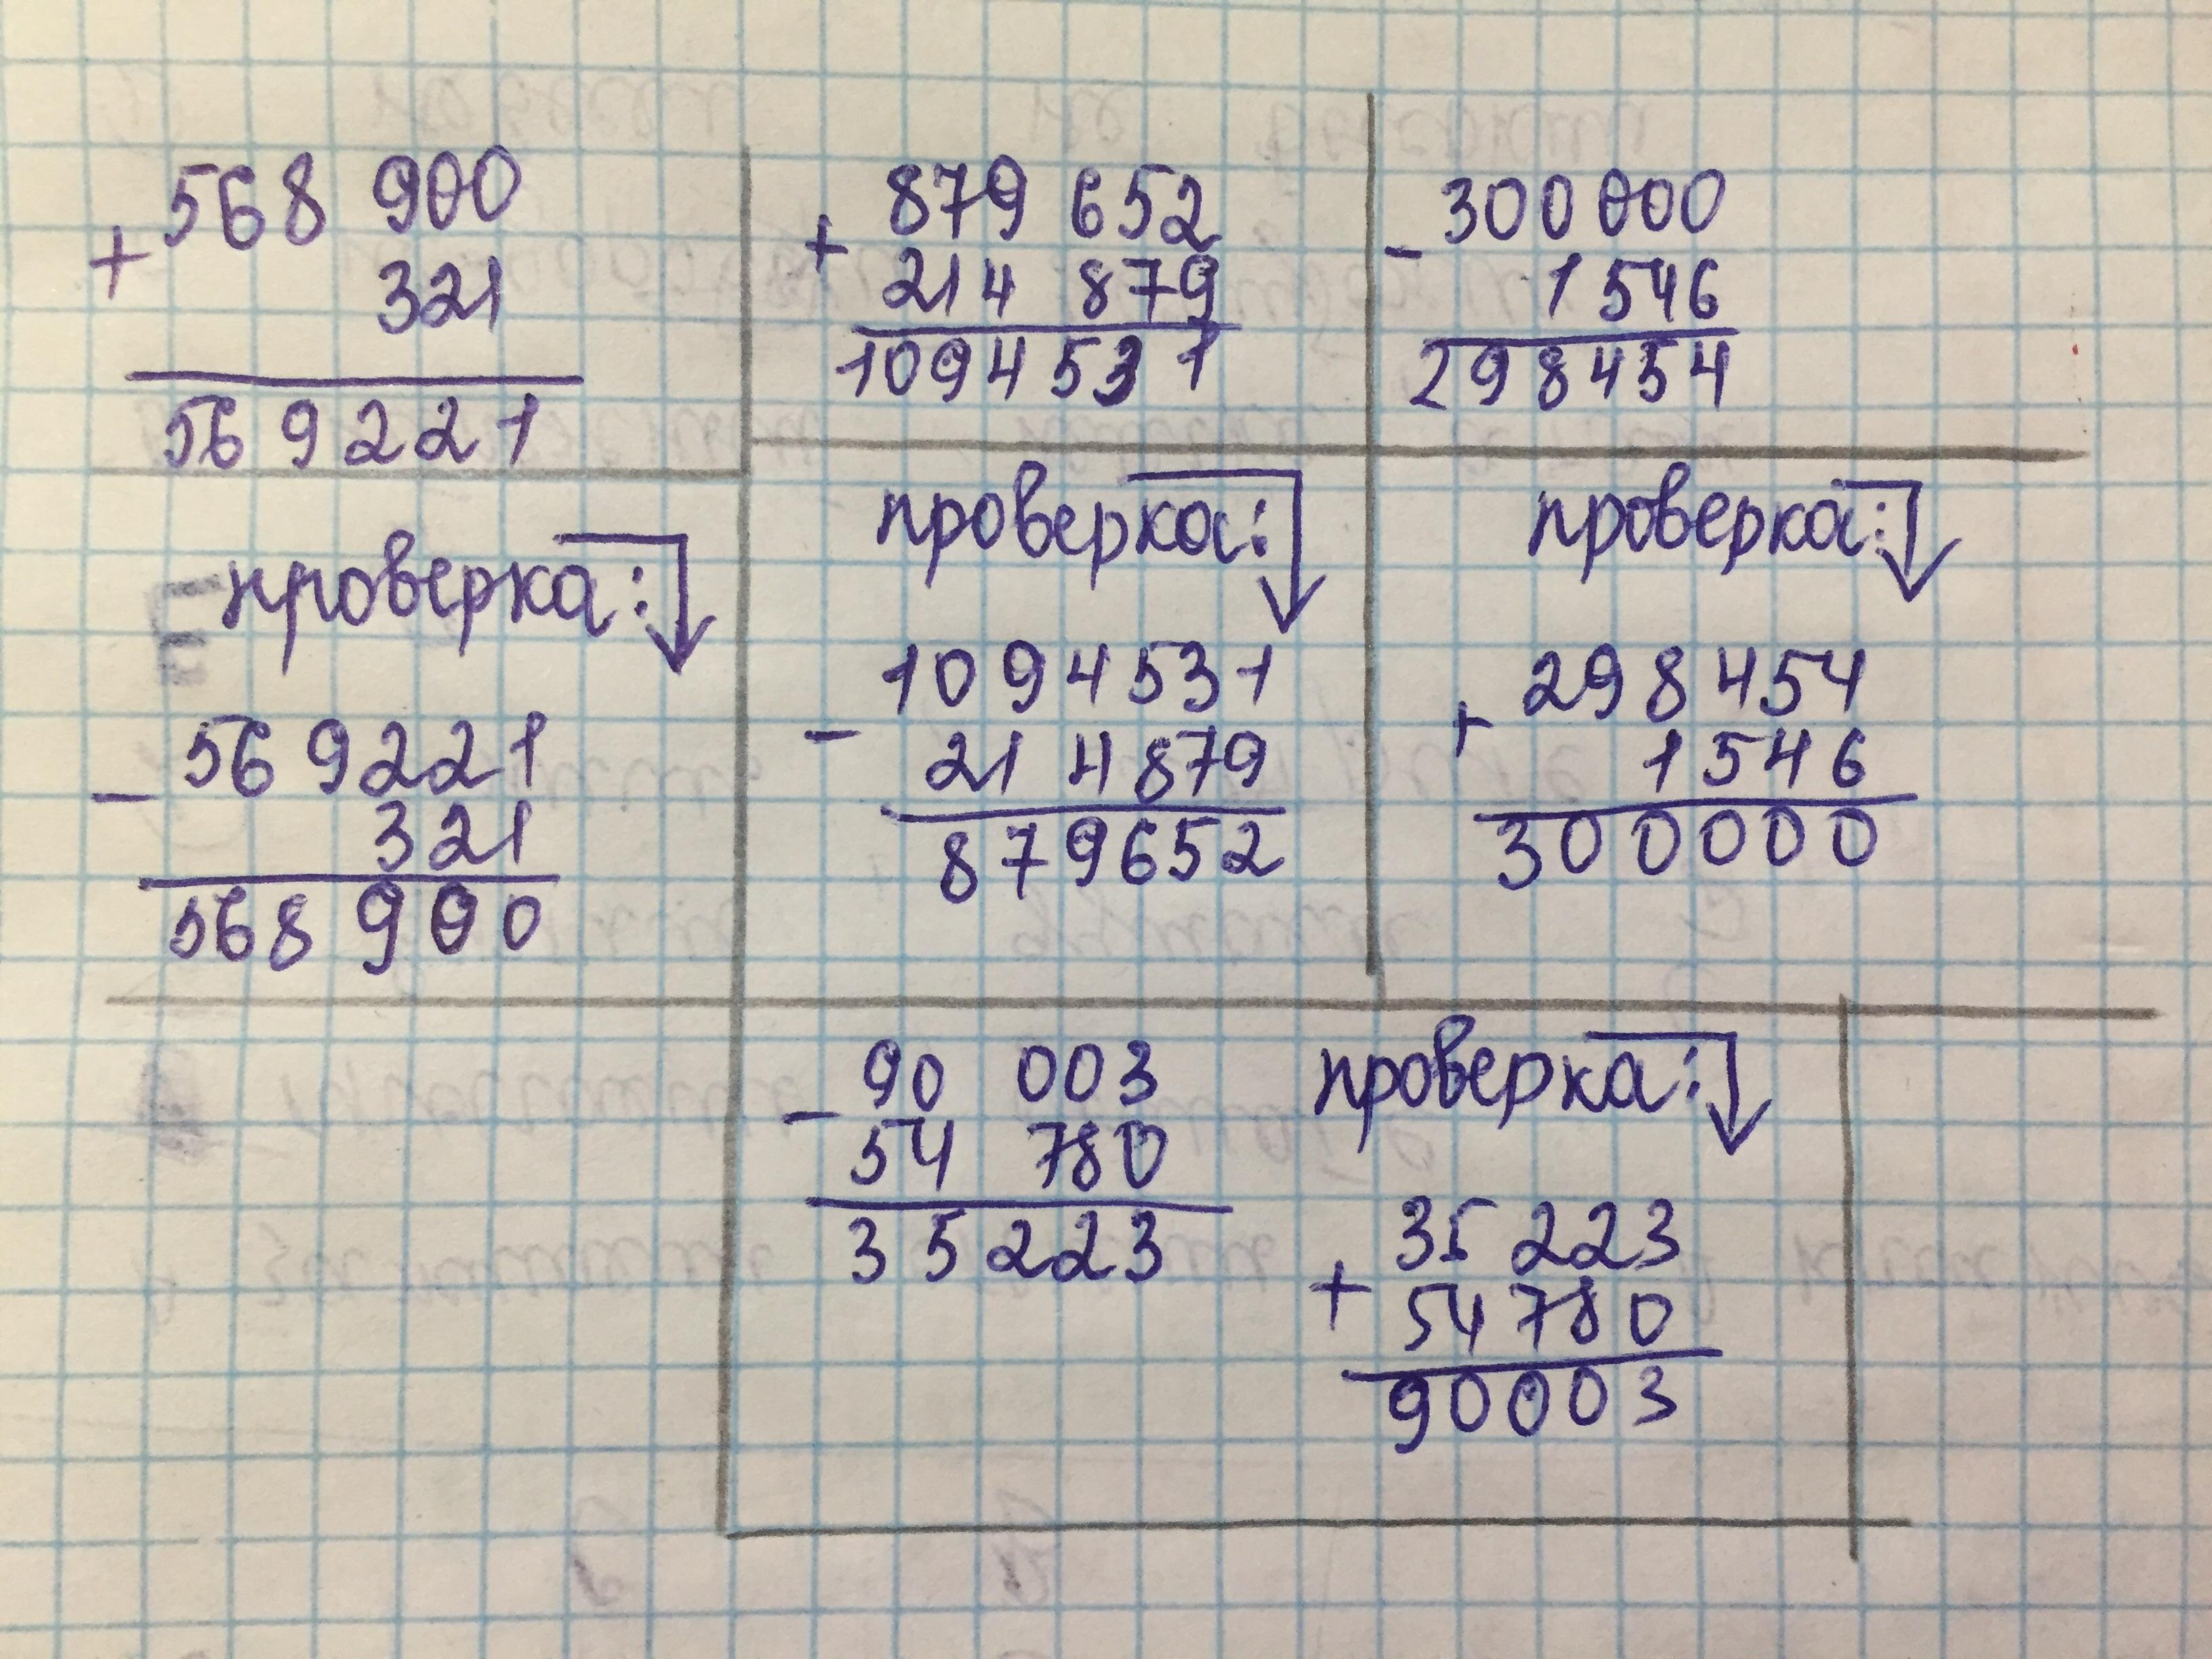 + 568 900
321
569221
проверка:
- 569221
321
568 900
+ 879 652
214 879
1094531
проверка:
- 1094531
214879
879652
- 300000
1546
298454
проверка:
+ 298454
1546
300000
- 90 003
54 780
35223
проверка:
+ 35223
54780
90003